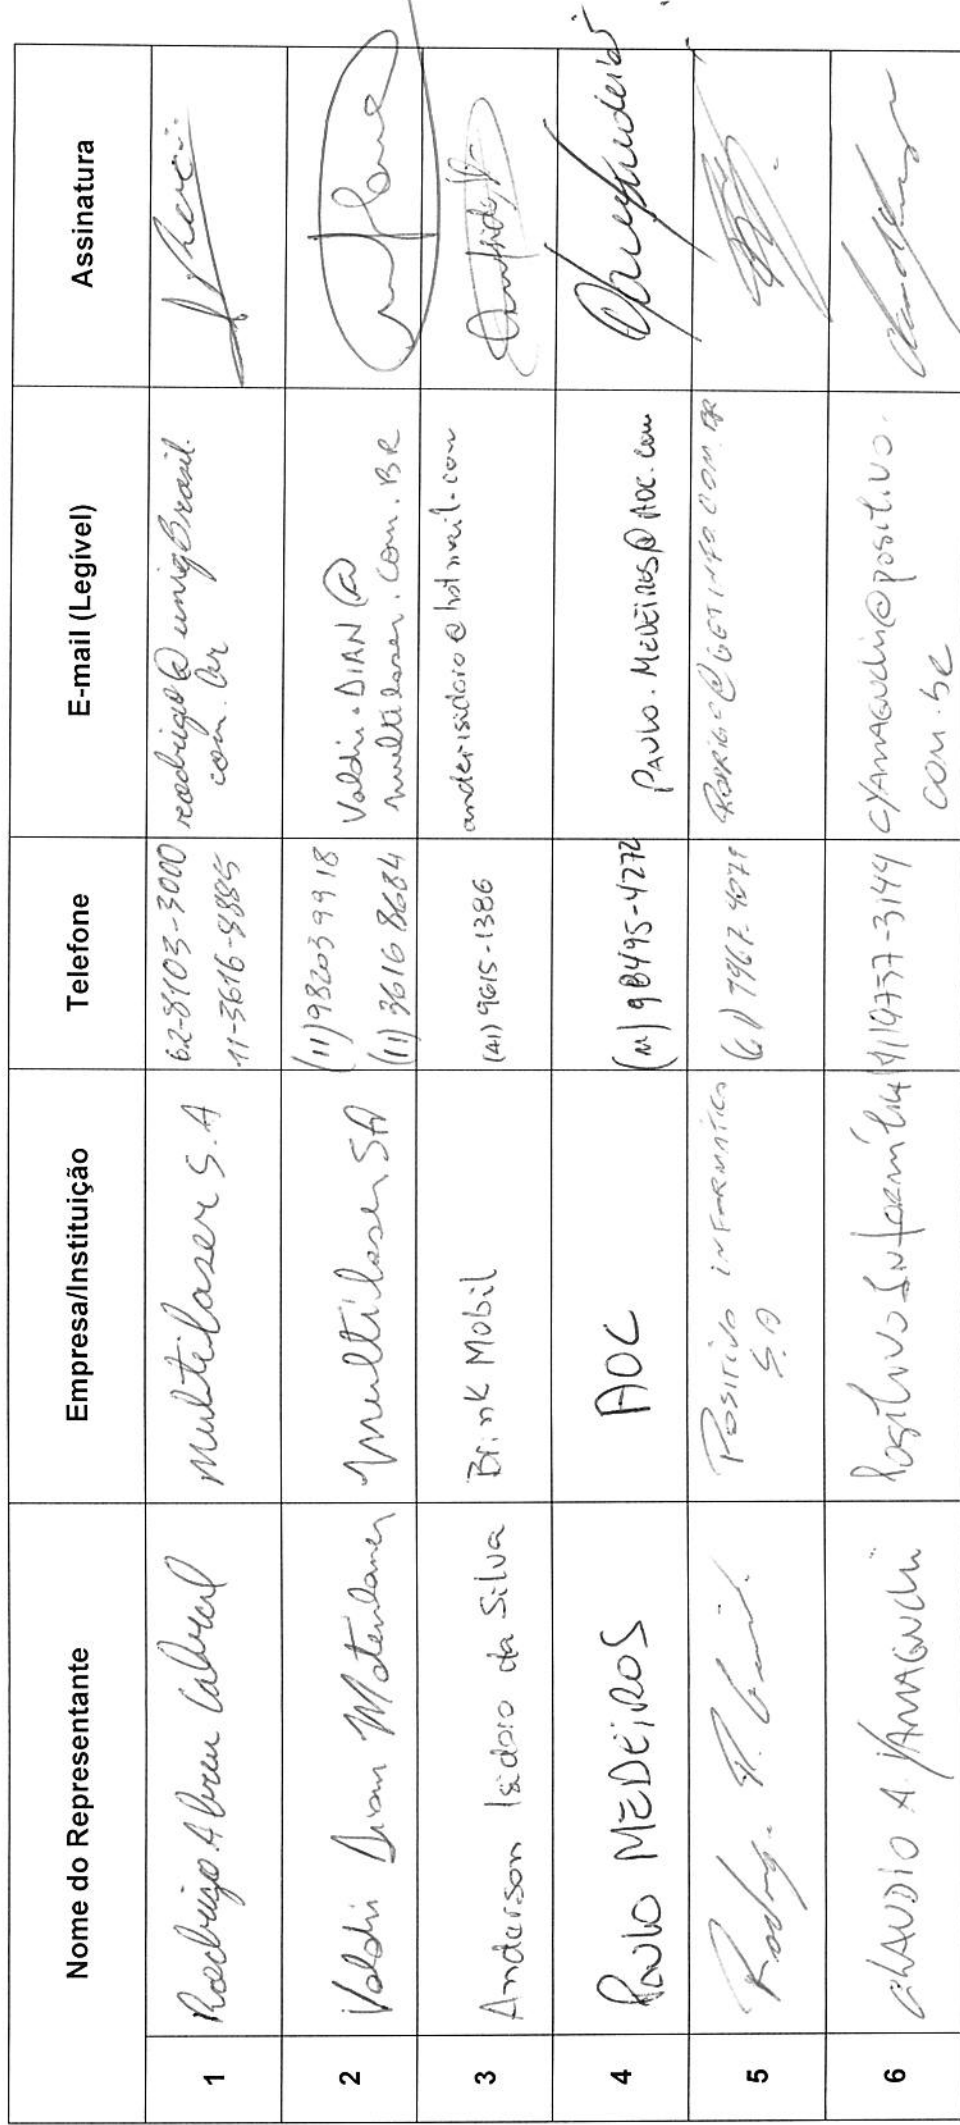 Nome do Representante
Empresa/Instituição
Telefone
E-mail (Legível)
Assinatura
1
Rodrigo Abreu Cabral
Multilaser S.A
62-8103-3000
11-3616-8885
rodrigo@
com.br
2
Valdir Dian
Multilaser SA
(11) 98203 9918
(11) 3616 8684
Valdir.DIAN@
multilaser.com.BR
3
Anderson Isidoro da Silva
Brink Mobil
(41) 9615-1386
anderisidoro@hotmail.com
4
PAULO MEDEIROS
AOC
(11) 98495-4272
PAULO.MEDEIROS@AOC.com
5
POSITIVO INFORMÁTICA
S.A
(61) 7967.4071
RODRIGO@GETINFO.COM.BR
6
CLAUDIO A. YAMAGUCHI
Positivo Informática
CYAMAGUCHI@positivo.
com.br